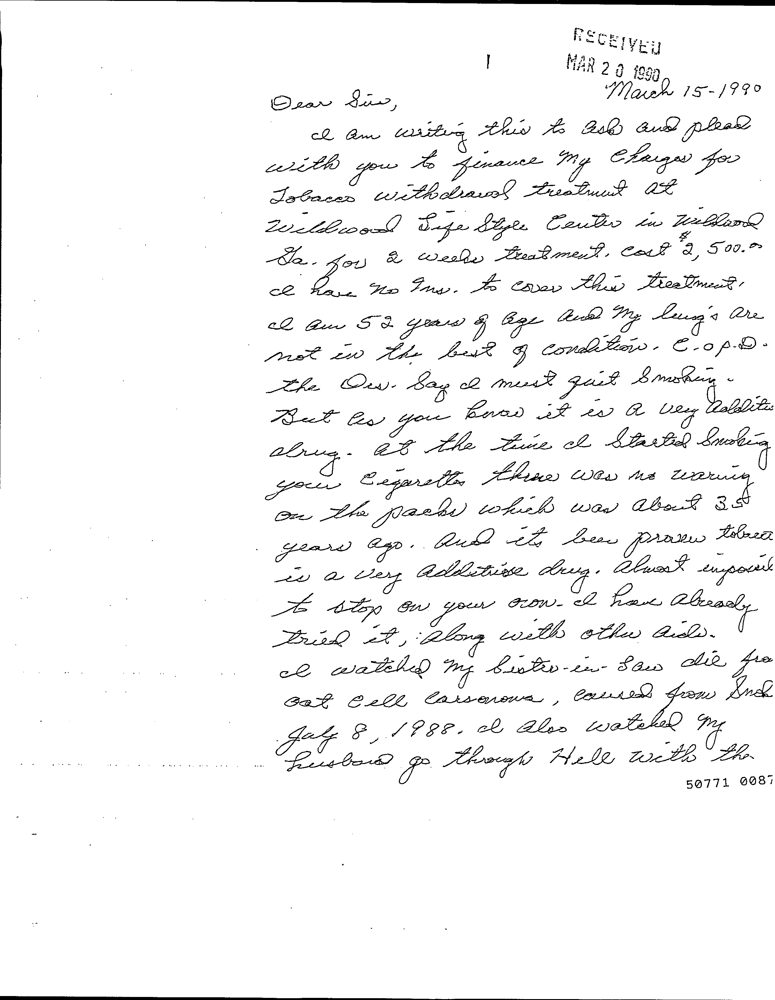 RECEIVED
MAR 20 1990
1
March 15-1990
Dear Sirs,
I am writing this to ask and plead
with you to finance my Charges for
Tobacco withdrawal treatment at
Wildwood Life Style Center in Wildwood
Ga. for 2 weeks treatment. cost $2,500.00
I have no Ins. to cover this treatment.
I am 52 years of age and my lung's are
not in the best of condition. C.O.P.D.
the Drs. Say I must quit Smoking.
But as you know it is a very additive
drug. at the time I started Smoking
your Cigarettes there was no waring
on the packs which was about 35
years ago. and its been proven tobacco
is a very additive drug. almost impossi
to stop on your own. I have already
tried it, along with other aids.
I watched my Sister-in-law die fro
oat cell carsonoma, caused from Smok
July 8, 1988. I also watched my
husband go through Hell with the
50771 0087